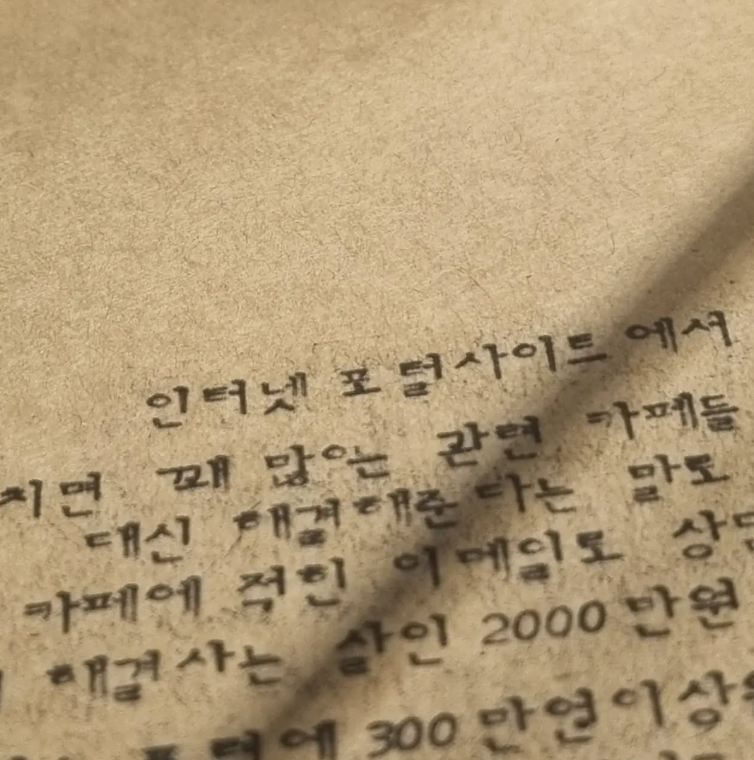 인터넷 포털사이트에서
치면 꽤 많은 관련 카페들
대신 해결해준다는 말도
카페에 적힌 이메일로
해결사는 살인 2000만원
300만원이상